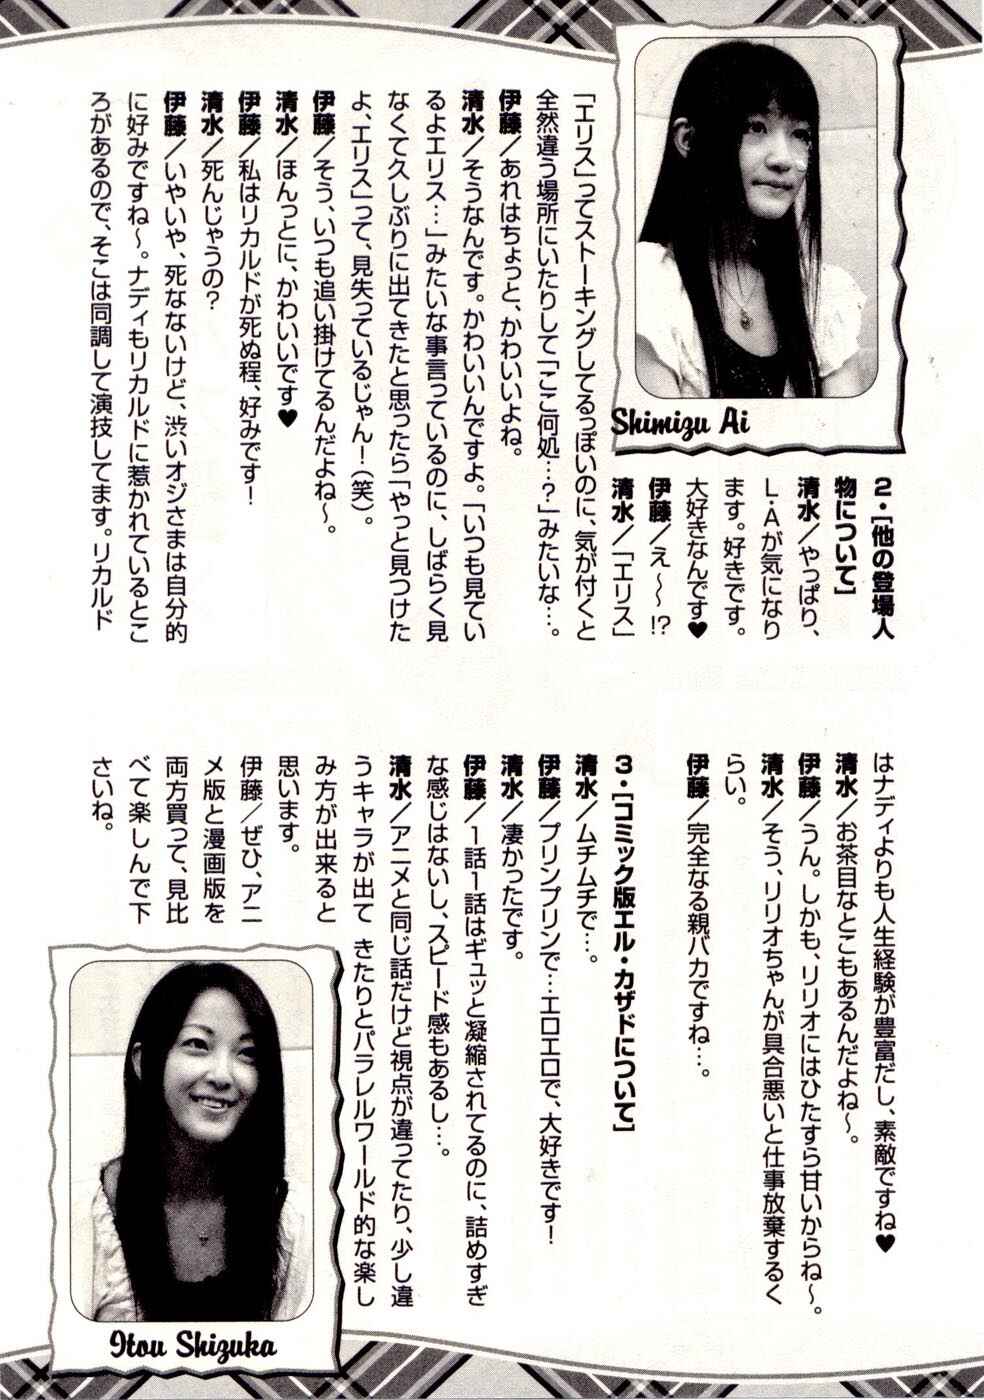 Shimizu Ai
2・[他の登場人
物について]
清水／やっぱり、
L・Aが気になり
ます。好きです。
大好きなんです♥
伊藤／え～～!?
清水／「エリス」
「エリス」ってストーキングしてるっぽいのに、気が付くと
全然違う場所にいたりして「ここ何処…？」みたいな…。
伊藤／あれはちょっと、かわいいよね。
清水／そうなんです。かわいいんですよ。「いつも見てい
るよエリス…」みたいな事言っているのに、しばらく見
なくて久しぶりに出てきたと思ったら「やっと見つけた
よ、エリス」って、見失っているじゃん！（笑）。
伊藤／そう、いつも追い掛けてるんだよね～。
清水／ほんっとに、かわいいです♥
伊藤／私はリカルドが死ぬ程、好みです！
清水／死んじゃうの？
伊藤／いやいや、死なないけど、渋いオジさまは自分的
に好みですね～。ナディもリカルドに惹かれているとこ
ろがあるので、そこは同調して演技してます。リカルド
はナディよりも人生経験が豊富だし、素敵ですね♥
清水／お茶目なとこもあるんだよね～。
伊藤／うん。しかも、リリオにはひたすら甘いからね～。
清水／そう、リリオちゃんが具合悪いと仕事放棄するく
らい。
伊藤／完全なる親バカですね…。
3・[コミック版エル・カザドについて]
清水／ムチムチで…。
伊藤／プリンプリンで…エロエロで、大好きです！
清水／凄かったです。
伊藤／1話1話はギュッと凝縮されてるのに、詰めすぎ
な感じはないし、スピード感もあるし…。
清水／アニメと同じ話だけど視点が違ってたり、少し違
うキャラが出てきたりとパラレルワールド的な楽し
み方が出来ると
思います。
伊藤／ぜひ、アニ
メ版と漫画版を
両方買って、見比
べて楽しんで下
さいね。
Itou Shizuka